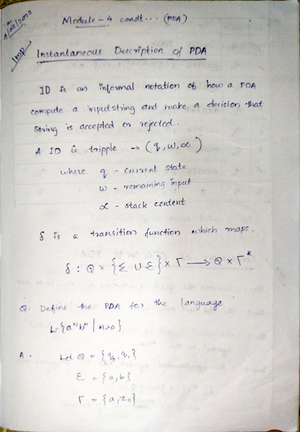 Module - 4 contd... (PDA)
Imp
Instantaneous Description of PDA
ID is an informal notation of how a PDA
compute a input string and make a decision that
string is accepted or rejected.
A ID is tripple → (q, w, α)
where q - current state
w - remaining input
α - stack content
δ is a transition function which maps.
δ : Q × {Σ ∪ ε} × Γ → Q × Γ*
Q. Define the PDA for the language
L={aⁿbⁿ | n>0}
A. Let Q = {q₀, q₁}
Σ = {a, b}
Γ = {a, z₀}